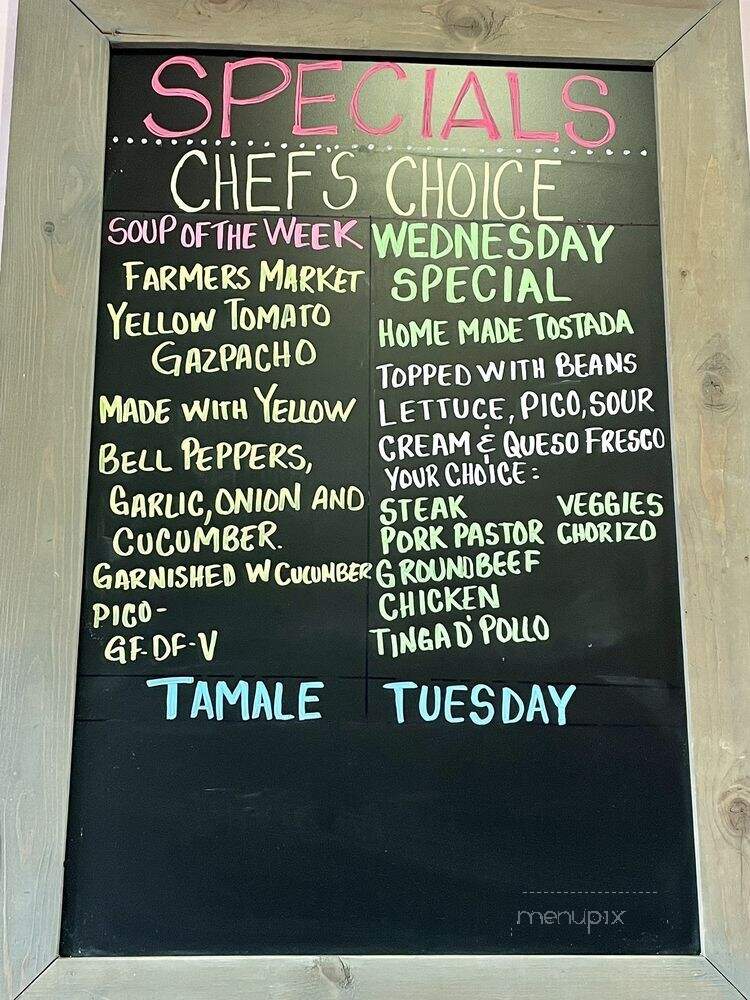 SPECIALS
CHEF'S CHOICE
SOUP OF THE WEEK
FARMERS MARKET
YELLOW TOMATO
GAZPACHO
MADE WITH YELLOW
BELL PEPPERS,
GARLIC, ONION AND
CUCUMBER.
GARNISHED W CUCUMBER
PICO-
GF-DF-V
WEDNESDAY
SPECIAL
HOME MADE TOSTADA
TOPPED WITH BEANS
LETTUCE, PICO, SOUR
CREAM & QUESO FRESCO
YOUR CHOICE:
STEAK VEGGIES
PORK PASTOR CHORIZO
GROUND BEEF
CHICKEN
TINGA D' POLLO
TAMALE TUESDAY
menupix